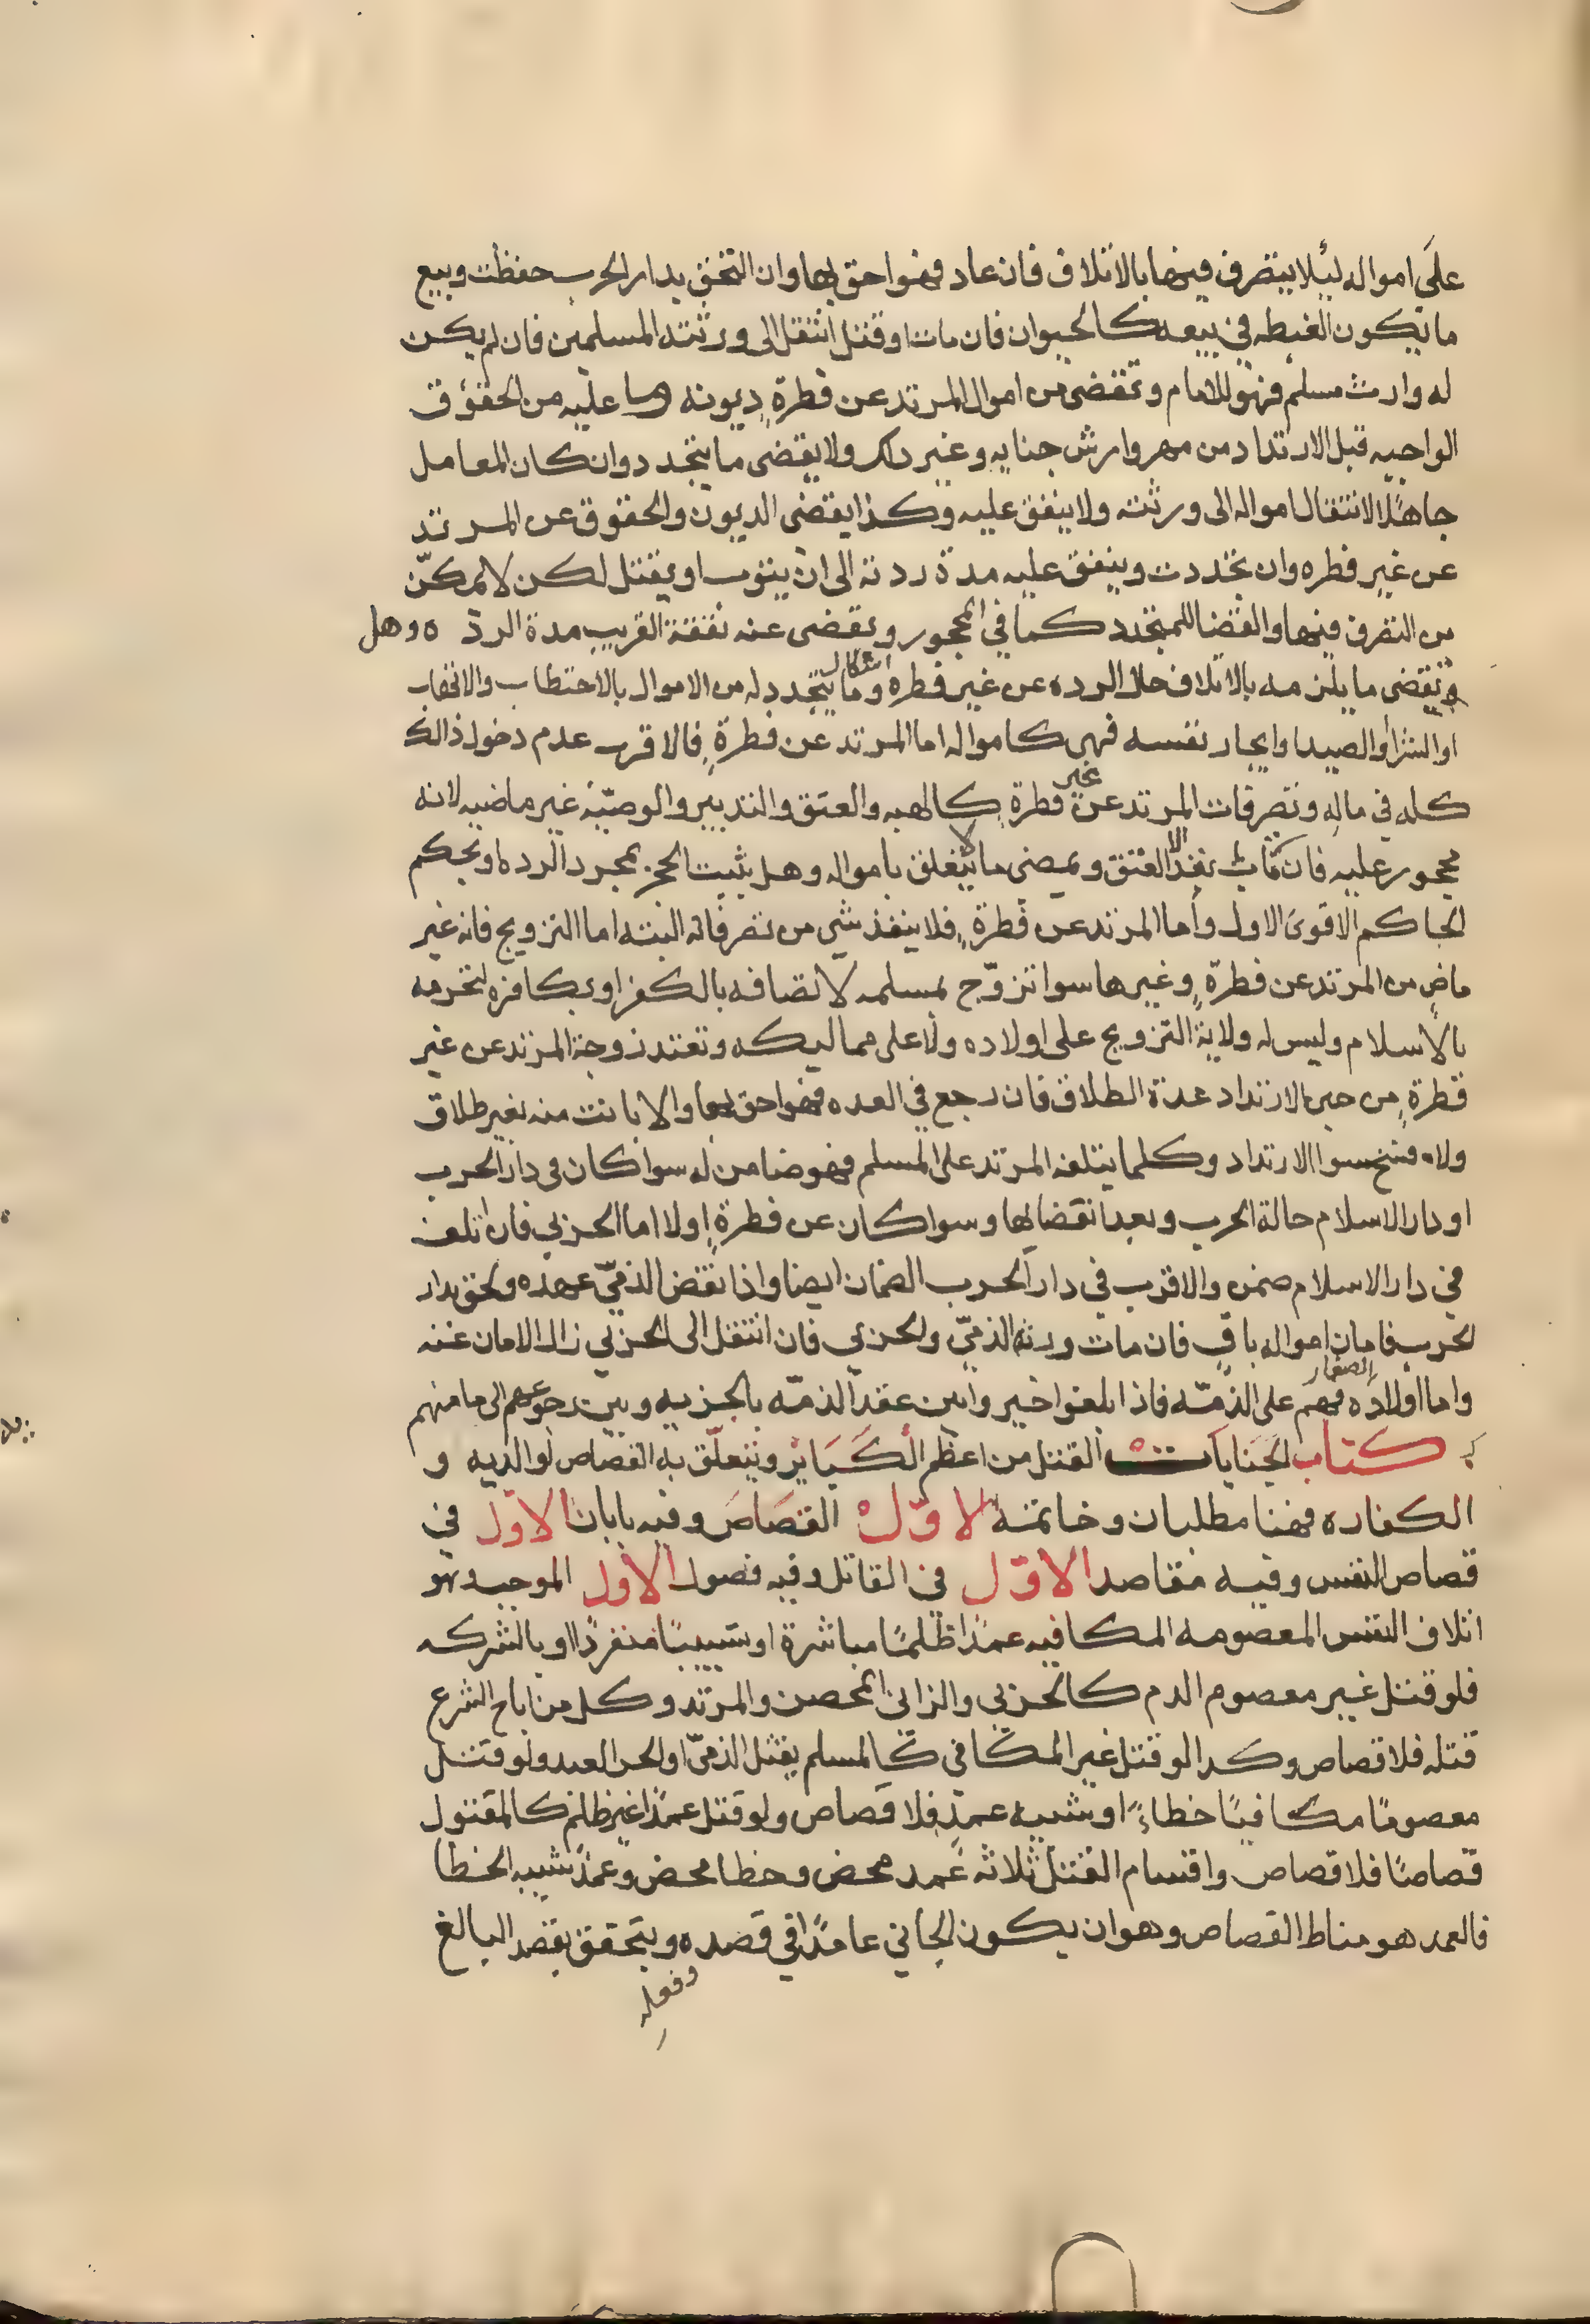 على امواله ليلا يتصرف فيها بالاتلاف فان عاد فهو احق بها وان التحق بدار الحرب حفظت وبيع
ما يكون الغبطه في بيعه كالحيوان فان مات او قتل انتقل الى ورثته المسلمين فان لم يكن
له وارث مسلم فهو للامام وتقضى من اموال المرتد عن فطرةٍ ديونه وما عليه من الحقوق
الواجبه قبل الارتداد من مهر وارش جنايه وغير ذلك ولا يقضى ما يتجدد وان كان المعامل
جاهلًا لانتقال امواله الى ورثته ولا ينفق عليه وكذا يقضى الديون والحقوق عن المرتد
عن غير فطره وان تجددت وينفق عليه مدة ردته الى ان يتوب او يقتل لكن لا يمكّن
من التصرف فيها والقضا للمتجدد كما في المحجور وتقضى عنه نفقة القريب مدة الردة وهل
تقضى ما يلزمه بالاتلاف حال الرده عن غير فطره اشكال وما يتجدد له من الاموال بالاحتطاب والاتهاب
او الشرا والصيد او ايجار نفسه فهي كامواله اما المرتد عن فطرةٍ فالاقرب عدم دخول ذالك
كله في ماله وتصرفات المرتد عن غير فطرةٍ كالهبه والعتق والتدبير والوصيّة غير ماضيه لانه
محجور عليه فان تاب نفذ الا العتق ويمضى ما لا يتعلق بامواله وهل يثبت الحجر بمجرد الرده او بحكم
الحاكم الاقوى الاول واما المرتد عن فطرةٍ فلا ينفذ شي من تصرفاته البته اما التزويج فانه غير
ماضٍ من المرتد عن فطرةٍ وغيرها سوا تزوّج بمسلمه لاتصافه بالكفر او بكافره لتحرمه
بالاسلام وليس له ولاية التزويج على اولاده ولا على مماليكه وتعتد زوجة المرتد عن غير
فطرةٍ من حين الارتداد عدة الطلاق فان رجع في العده فهو احق بها والا بانت منه بغير طلاق
ولا فسخ سوا الارتداد وكلما يتلفه المرتد على المسلم فهو ضامن له سوا كان في دار الحرب
او دار الاسلام حالة الحرب وبعد انقضايها وسوا كان عن فطرةٍ اولا اما الحربي فان اتلف
في دار الاسلام ضمن والاقرب في دار الحرب الضمان ايضا واذا نقض الذميّ عهده ولحق بدار
الحرب فامان امواله باقٍ فان مات ورثه الذميّ والحربي فان انتقل الى الحربي زال الامان عنه
واما اولاده الصغار فهم على الذمّه فاذا بلغوا خير وا بين عقد الذمّه بالجزيه وبين رجوعهم الى مامنهم
كتاب الجنايات القتل من اعظم الكبايرْ ويتعلّق به القصاص او الديه و
الكفاره فهنا مطلبان وخاتمة الاوّل القصاص وفيه بابان الاول في
قصاص النفس وفيه مقاصد الاوّل في القاتل وفيه فصول الاول الموجب وهو
اتلاف النفس المعصومه المكافيه عمدًا ظلمًا مباشرة او تسبيبًا منفردًا او بالشركه
فلو قتل غير معصوم الدم كالحربى والزانى المحصن والمرتد وكل من اباح الشرع
قتله فلا قصاص وكذا لو قتل غير المكافى كالمسلم يقتل الذميّ او الحر العبد ولو قتل
معصومًا مكافيًا خطاءً او شبيه عمدٍ فلا قصاص ولو قتل عمدًا غير ظلم كالمقتول
قصاصًا فلا قصاص واقسام القتل ثلاثه عمد محض وخطا محض وعمد شبيه الخطا
فالعمد هو مناط القصاص وهو ان يكون الجاني عامدًا في قصده ويتحقق بقصد البالغ
وفعله